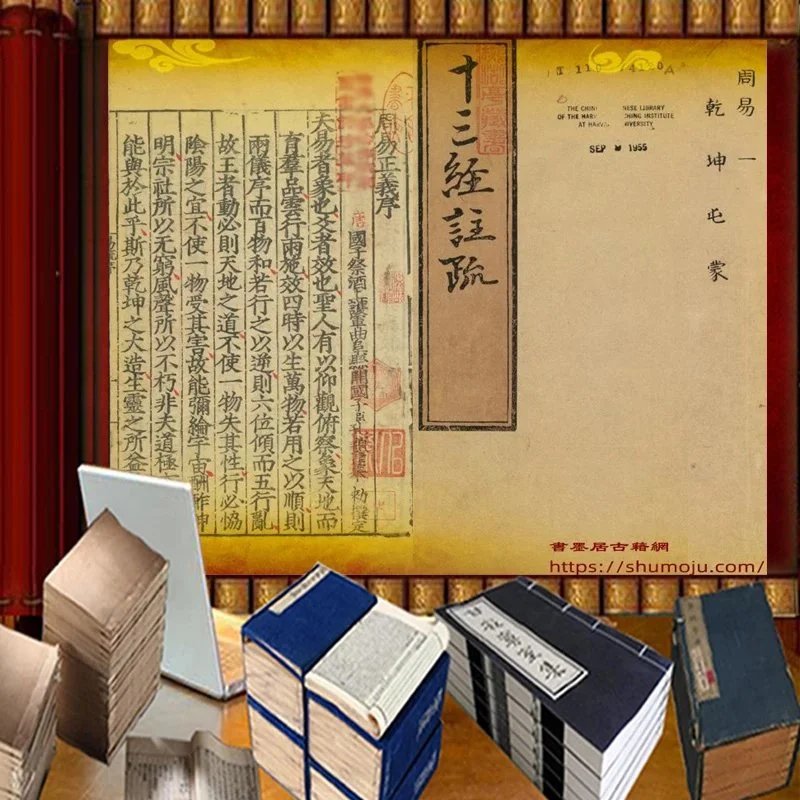 周易一
乾坤屯蒙
THE CHIN NESE LIBRARY
OF THE HAR CHING INSTITUTE
AT HARV VERSITY
SEP 1955
十三經註疏
周易正義序
唐國子祭酒上護軍曲阜縣開國子臣孔 勅撰定
夫易者象也爻者效也聖人有以仰觀俯察象天地而
育羣品雲行雨施效四時以生萬物若用之以順則
兩儀序而百物和若行之以逆則六位傾而五行亂
故王者動必則天地之道不使一物失其性行必恊
陰陽之宜不使一物受其害故能彌綸宇宙酬酢神
明宗社所以无窮風聲所以不朽非夫道極
能與於此乎斯乃乾坤之大造生靈之所益
書墨居古藉網
https://shumoju.com/